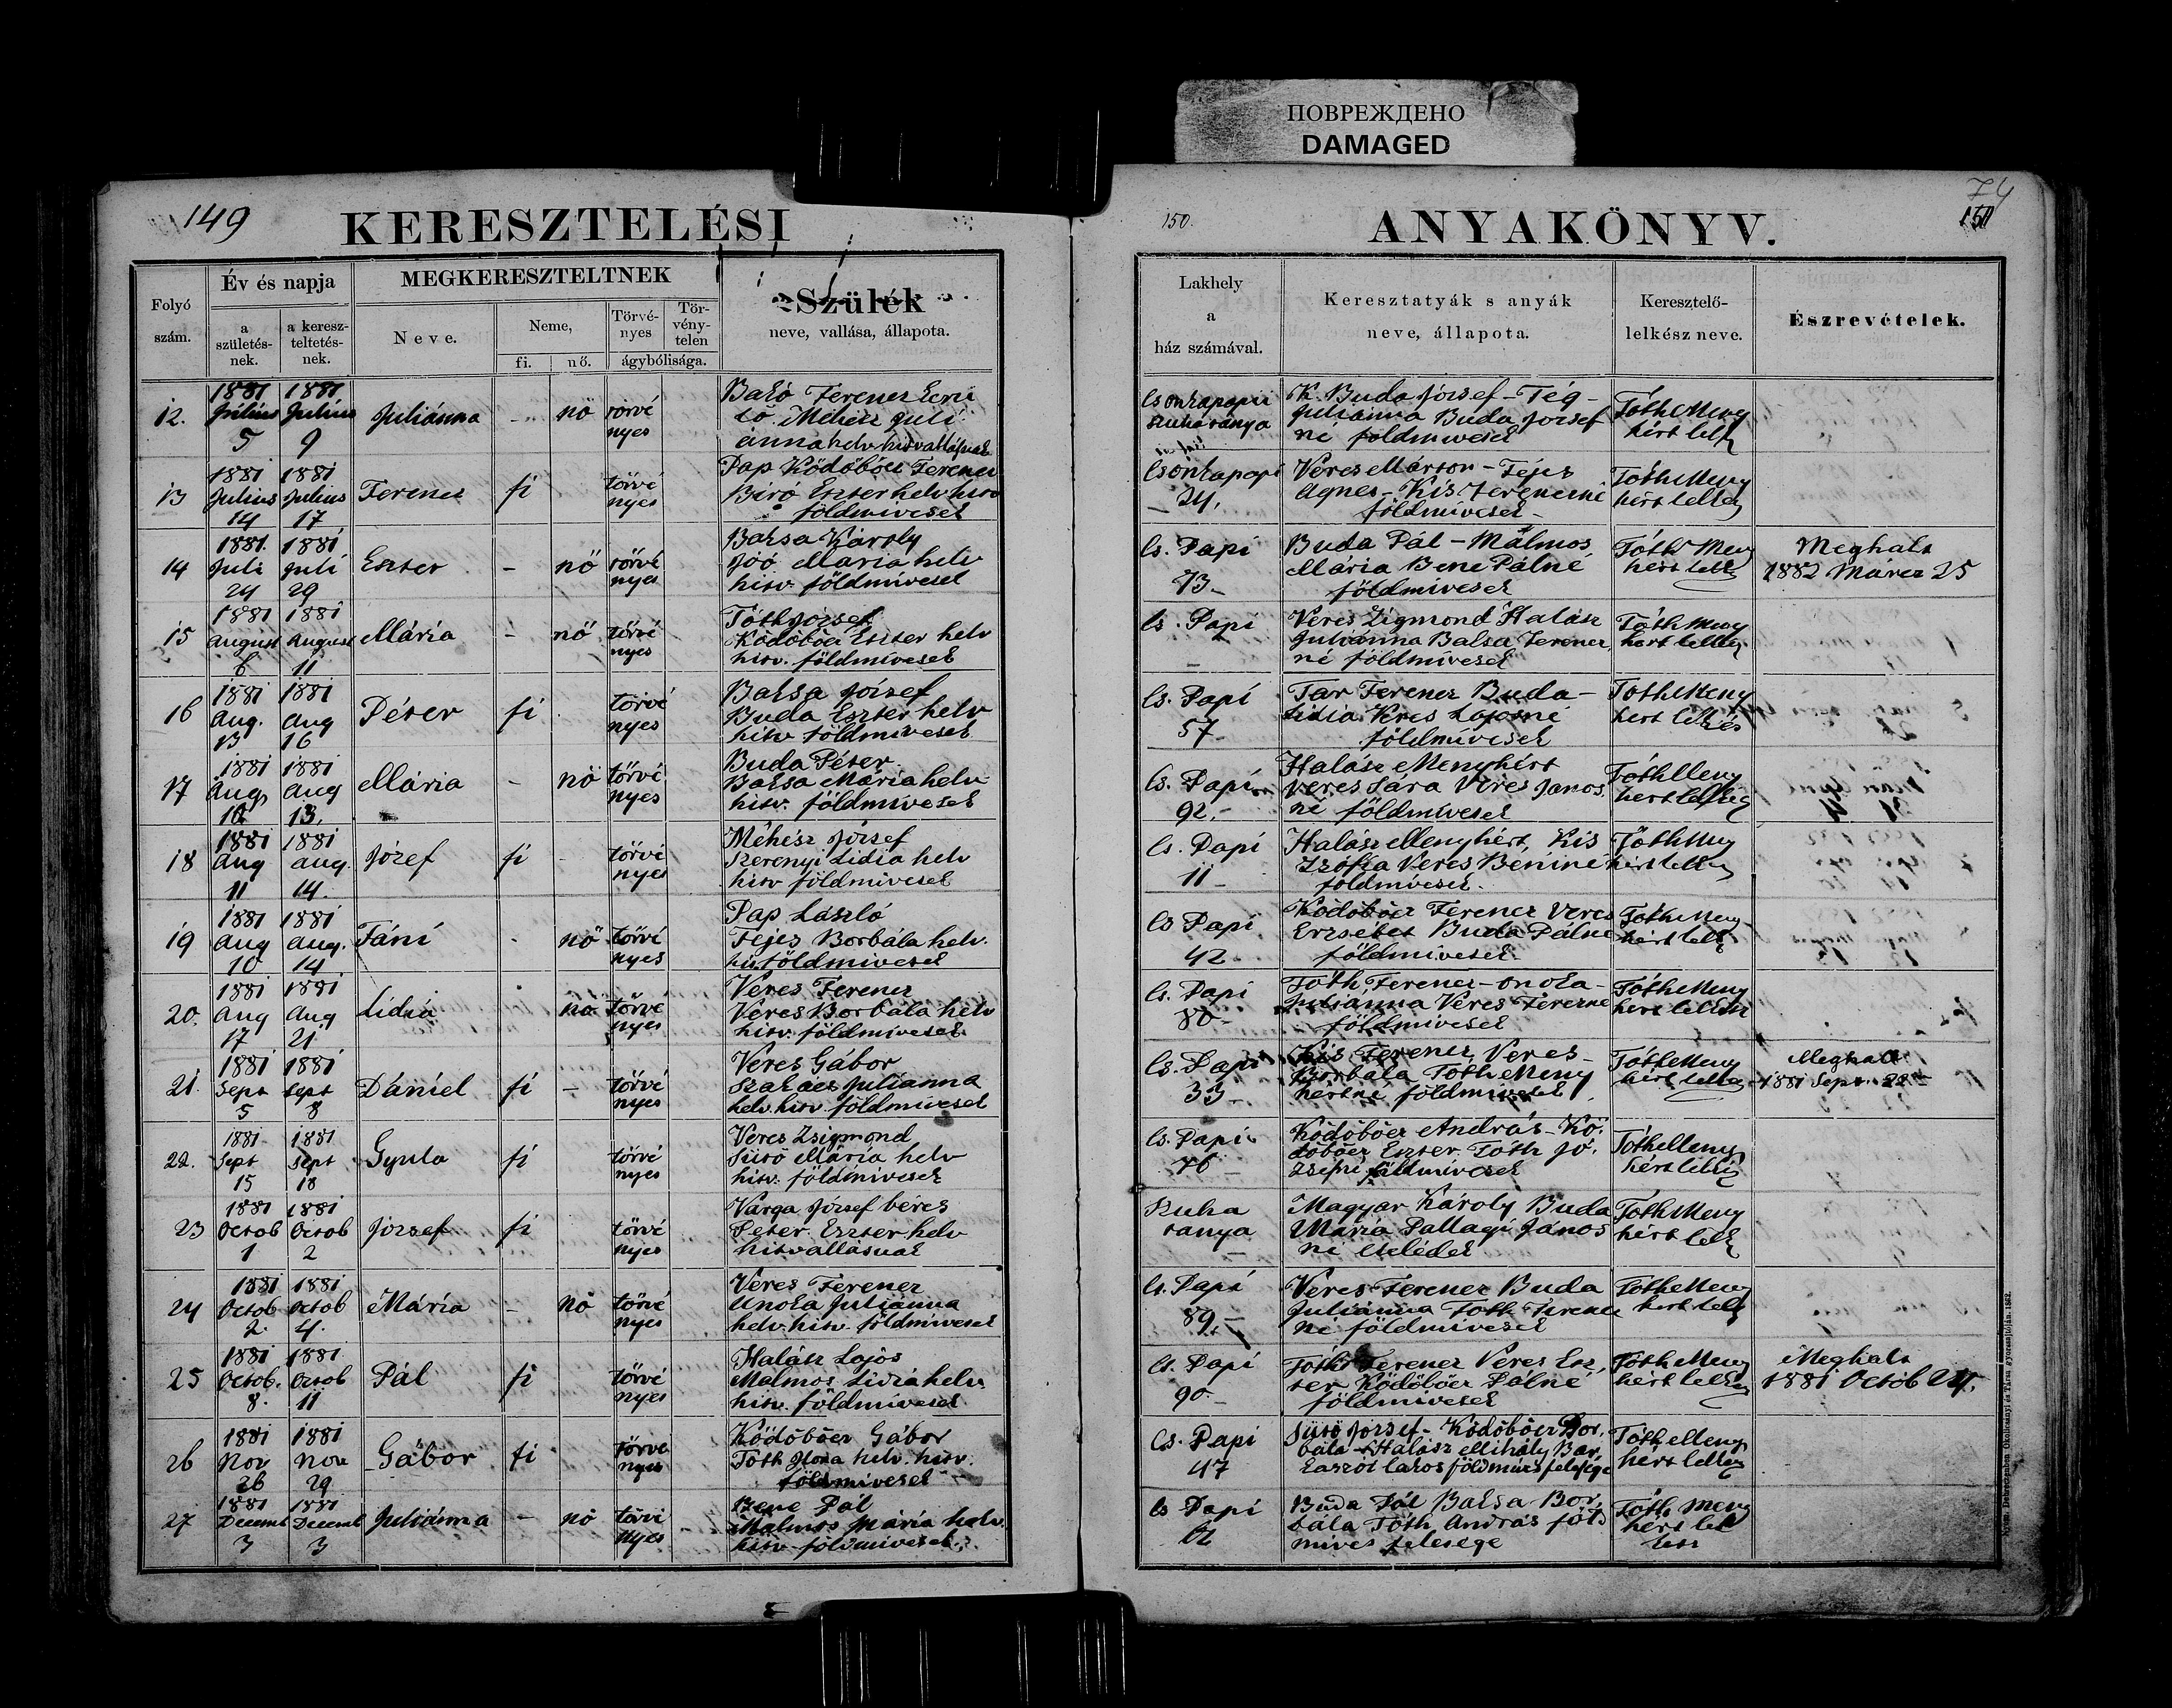 ПОВРЕЖДЕНО
DAMAGED
149
KERESZTELÉSI
Folyó
szám.
Év és napja
a
születés-
nek.
a keresz-
teltetés-
nek.
MEGKERESZTELTNEK
Neve.
Neme,
fi.
nő.
Törvé-
nyes
Tör-
vény-
telen
ágybólisága.
Szülék
neve, vallása, állapota.
12.
1881 1881
Július Július
5 9
Juliánna
nö
törvé
nyes
Ferencz
ánna helv hitvallásuak
13
1881 1881
Julius Julius
14 17
Ferencz
fi
törvé
nyes
Pap Ködöböcz Ferencz
Biró Eszter helv hitv
földmivesek
14
1881. 1881
Juli Juli
24 29
Eszter
-
nö
törvé
nyes
Balsa Károly
Joó Mária helv
hitv. földmivesek
15
1881 1881
August August
6 11
Mária
-
nö
törvé
nyes
Tóth József
Ködöböcz Eszter helv
hitv. földmivesek
16
1881 1881
Aug. Aug
13 16
Péter
fi
törvé
nyes
Balsa József
Buda Eszter helv
hitv földmivesek
17
1881 1881
Aug Aug
10 13.
Mária
-
nö
törvé
nyes
Buda Péter
Balsa Mária helv
hitv. földmivesek
18
1881 1881
Aug aug.
11 14.
József
fi
törvé
nyes
Méhész József
Szerenyi Lidia helv
hitv földmivesek
19
1881 1881
Aug Aug.
10 14
Fáni
nö
törvé
nyes
Pap László
Fejes Borbála helv.
hit földmivesek
20.
1881 1881
Aug Aug
17 21
Lidia
nö
törvé
nyes
Veres Ferencz
Veres Borbála helv
hitv. földmivesek
21.
1881 1881
Sept Sept
5 8
Dániel
fi
-
törvé
nyes
Veres Gábor
Szakács Julianna
helv. hitv. földmivesek
22.
1881 1881
Sept Sept
15 18
Gyula
fi
törvé
nyes
Veres Zsigmond
Sütö Mária helv
hitv. földmivesek
23
1881 1881
Octob Octob
1 2
József
fi
törvé
nyes
Varga József béres
Péter Eszter helv
hitvallásuak
24
1881 1881
Octob Octob
2. 4.
Mária
-
nö
törvé
nyes
Veres Ferencz
Unoka Juliánna
helv. hitv. földmivesek
25
1881 1881
Octob. Octob
8. 11
Pál
fi
törvé
nyes
Halász Lajos
Malmos Lidia helv
hitv. földmivesek
26
1881 1881
Nov Nov
26 29
Gábor
fi
törvé
nyes
Ködöböcz Gábor
Tóth helv. hitv.
földmivesek
27
1881 1881
Decemb Decemb
3 3
Juliánna
-
nö
törvé
nyes
Bene Pál
Malmos Mária helv.
hitv földmivesek
150.
ANYAKÖNYV.
74
151
Lakhely
a
ház számával.
Keresztatyák s anyák
neve, állapota.
Keresztelő-
lelkész neve.
Észrevételek.
Csonkapapii
Szuha tanya
K. Buda József - Tég -
Julianna Buda József
né földmivesek
Tóth Meny
hért lelk
Csonkapapi
24.
Veres Márton - Fejes
Ágnes - Kis Ferenczné
földmivesek -
Tóth Meny
hért lelk
Cs. Papi
73 -
Buda Pál - Málmos
Mária Bene Pálné
földmivesek
Tóth Meny
hért lelk
Meghalt
1882 Márcz 25
Cs. Papi
-
Veres Zigmond Halász
Julianna Balsa Ferencz
né földmivesek
Tóth Meny
hért lelk
Cs. Papi
57
Tar Ferencz Buda -
Lidia Veres Lajosné
földmivesek
Tóth Meny
hért lelkés
Cs. Papi
92. -
Halász Menyhért
Veres Sára Veres Janos
né földmivesek
Tóth Meny
hért lelk
Cs. Papi
11 -
Halász Menyhért, Kis
Zsófia Veres Beniné
földmivesek.
Tóth Meny
hért lelk
Cs Papi
42 -
Ködöböcz Ferencz Veres
Erzsébet Buda Pálné
földmivesek
Tóth Meny
hért lelk
Cs. Papi
80 -
Tóth Ferencz - Unoka -
Julianna Veres Ferenczné
földmivesek
Tóth Meny
hért lelk
Cs. Papi
33 -
Kis Ferencz Veres -
Borbála Tóth Meny
hértné földmivesek
Tóth Meny
hért lelk
Meghalt
1881 Sept. 22
Cs. Papi
46 -
Ködöböcz András - Kö-
döböcz Eszter Tóth Jó-
zsefné földmivesek
Tóth Meny
hért lelk
Szuha
tanya
-
Magyar Károly Buda
Mária Pallagi János
né cselédek
Tóth Meny
hért lelk
Cs. Papi
89. -
Veres Ferencz Buda
Juliánna Tóth Ferencz
né földmivesek
Tóth Meny
hért lelk
Cs. Papi
90 -
Tóth Ferencz Veres Esz-
ter Ködöböcz Pálné
földmivesek
Tóth Meny
hért lelk
Meghalt
1881 Octob 24.
Cs. Papi
47
Sütö József - Ködöböcz Bor-
bála - Halász Mihály Bar-
kaszói lakos földmives felesége
Tóth Meny
hért lelk
Cs Papi
62
Buda Pál Balsa Bor-
bála Tóth András föld
mives felesége
Tóth Meny
hért lel
kész